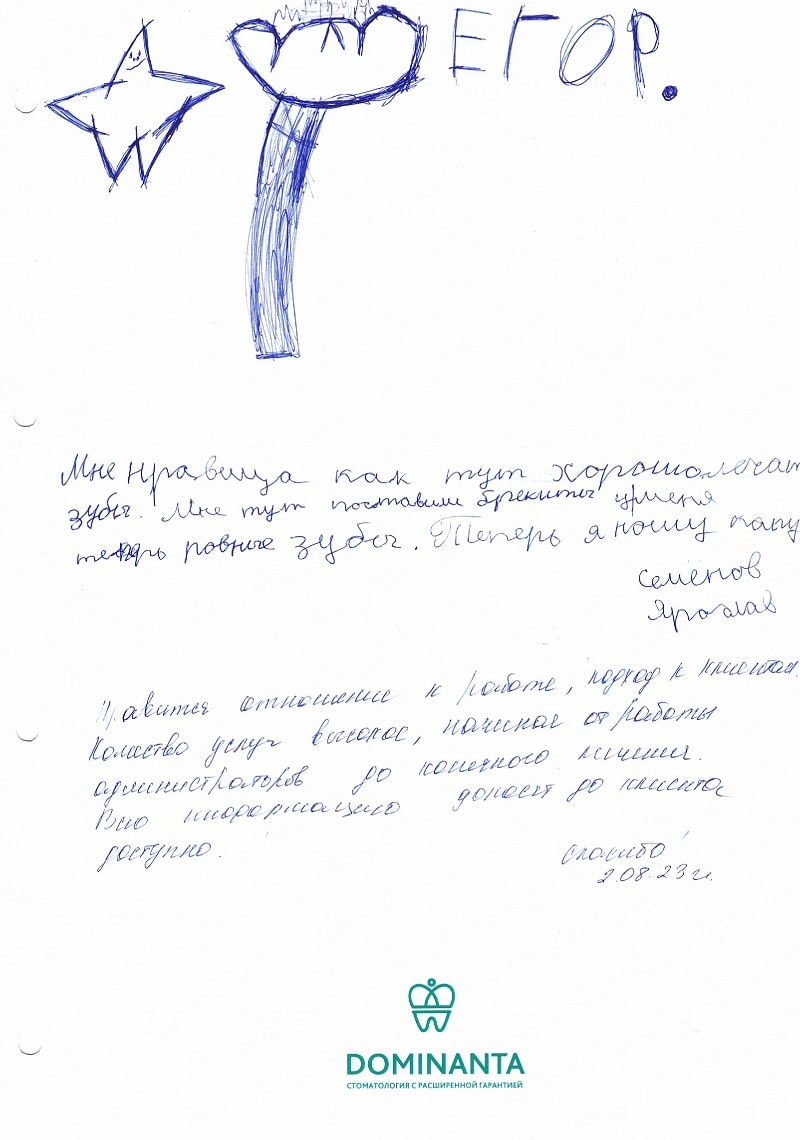 ЕГОР.
Мне нравица как тут хорошо лечат
зубы. Мне тут поставили брекиты у меня
теперь ровные зубы. Теперь я ношу капу
Семёнов
Ярослав
Нравится отношение к работе, подход к клиентам.
услуг высокое, начиная от работы
администраторов до конечного лечения.
Всю информацию доносят до клиента
доступно.
Спасибо!
2.08.23 г.
DOMINANTA
СТОМАТОЛОГИЯ С РАСШИРЕННОЙ ГАРАНТИЕЙ